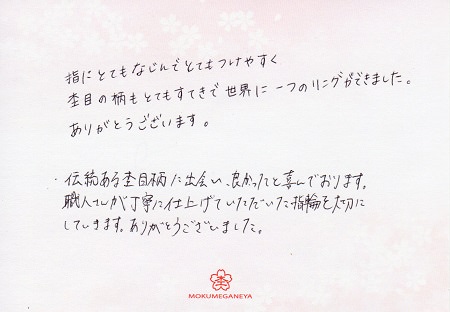 指にとてもなじんでとてもつけやすく
杢目の柄もとてもすてきで世界に一つのリングができました。
ありがとうございます。
・伝統ある杢目柄に出会い、良かったと喜んでおります。
職人さんが丁寧に仕上げていただいた指輪を大切に
していきます。ありがとうございました。
MOKUMEGANEYA